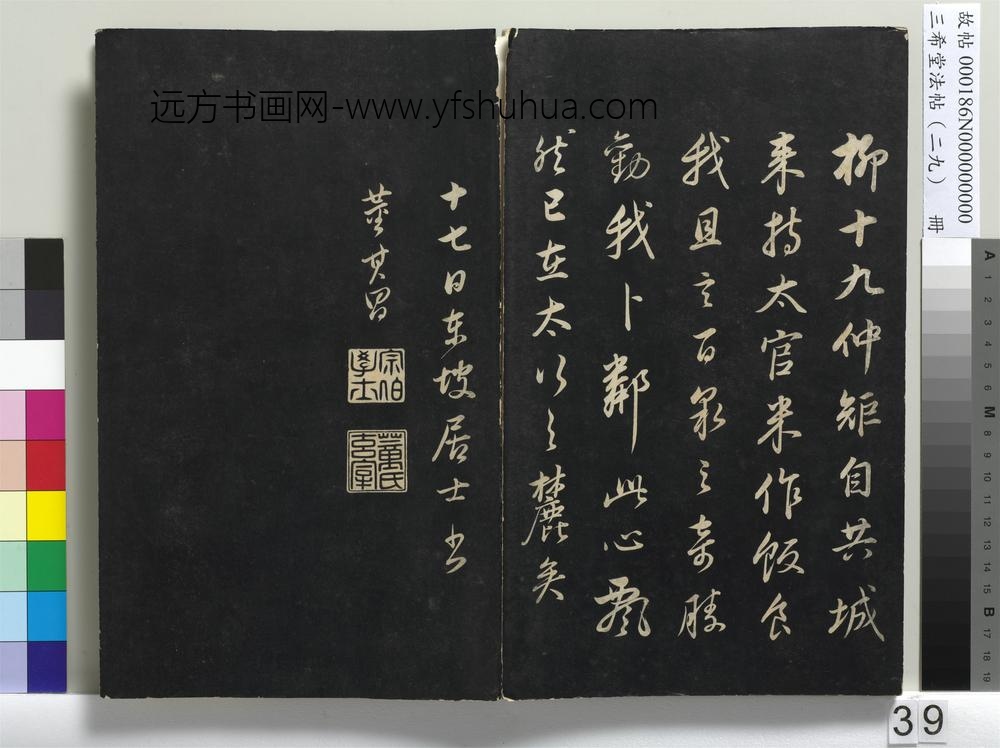 柳十九仲矩自共城
来持太官米作飯食
我且言百泉之奇勝
勸我卜鄰此心飄
然已在太行之麓矣
十七日東坡居士書
董其昌
宗伯學士
董氏玄宰
远方书画网-www.yfshuhua.com
故帖 000186N000000000
三希堂法帖（二九） 冊
A 1 2 3 4 5 6 M 8 9 10 11 12 13 14 15 B 17 18 19
39